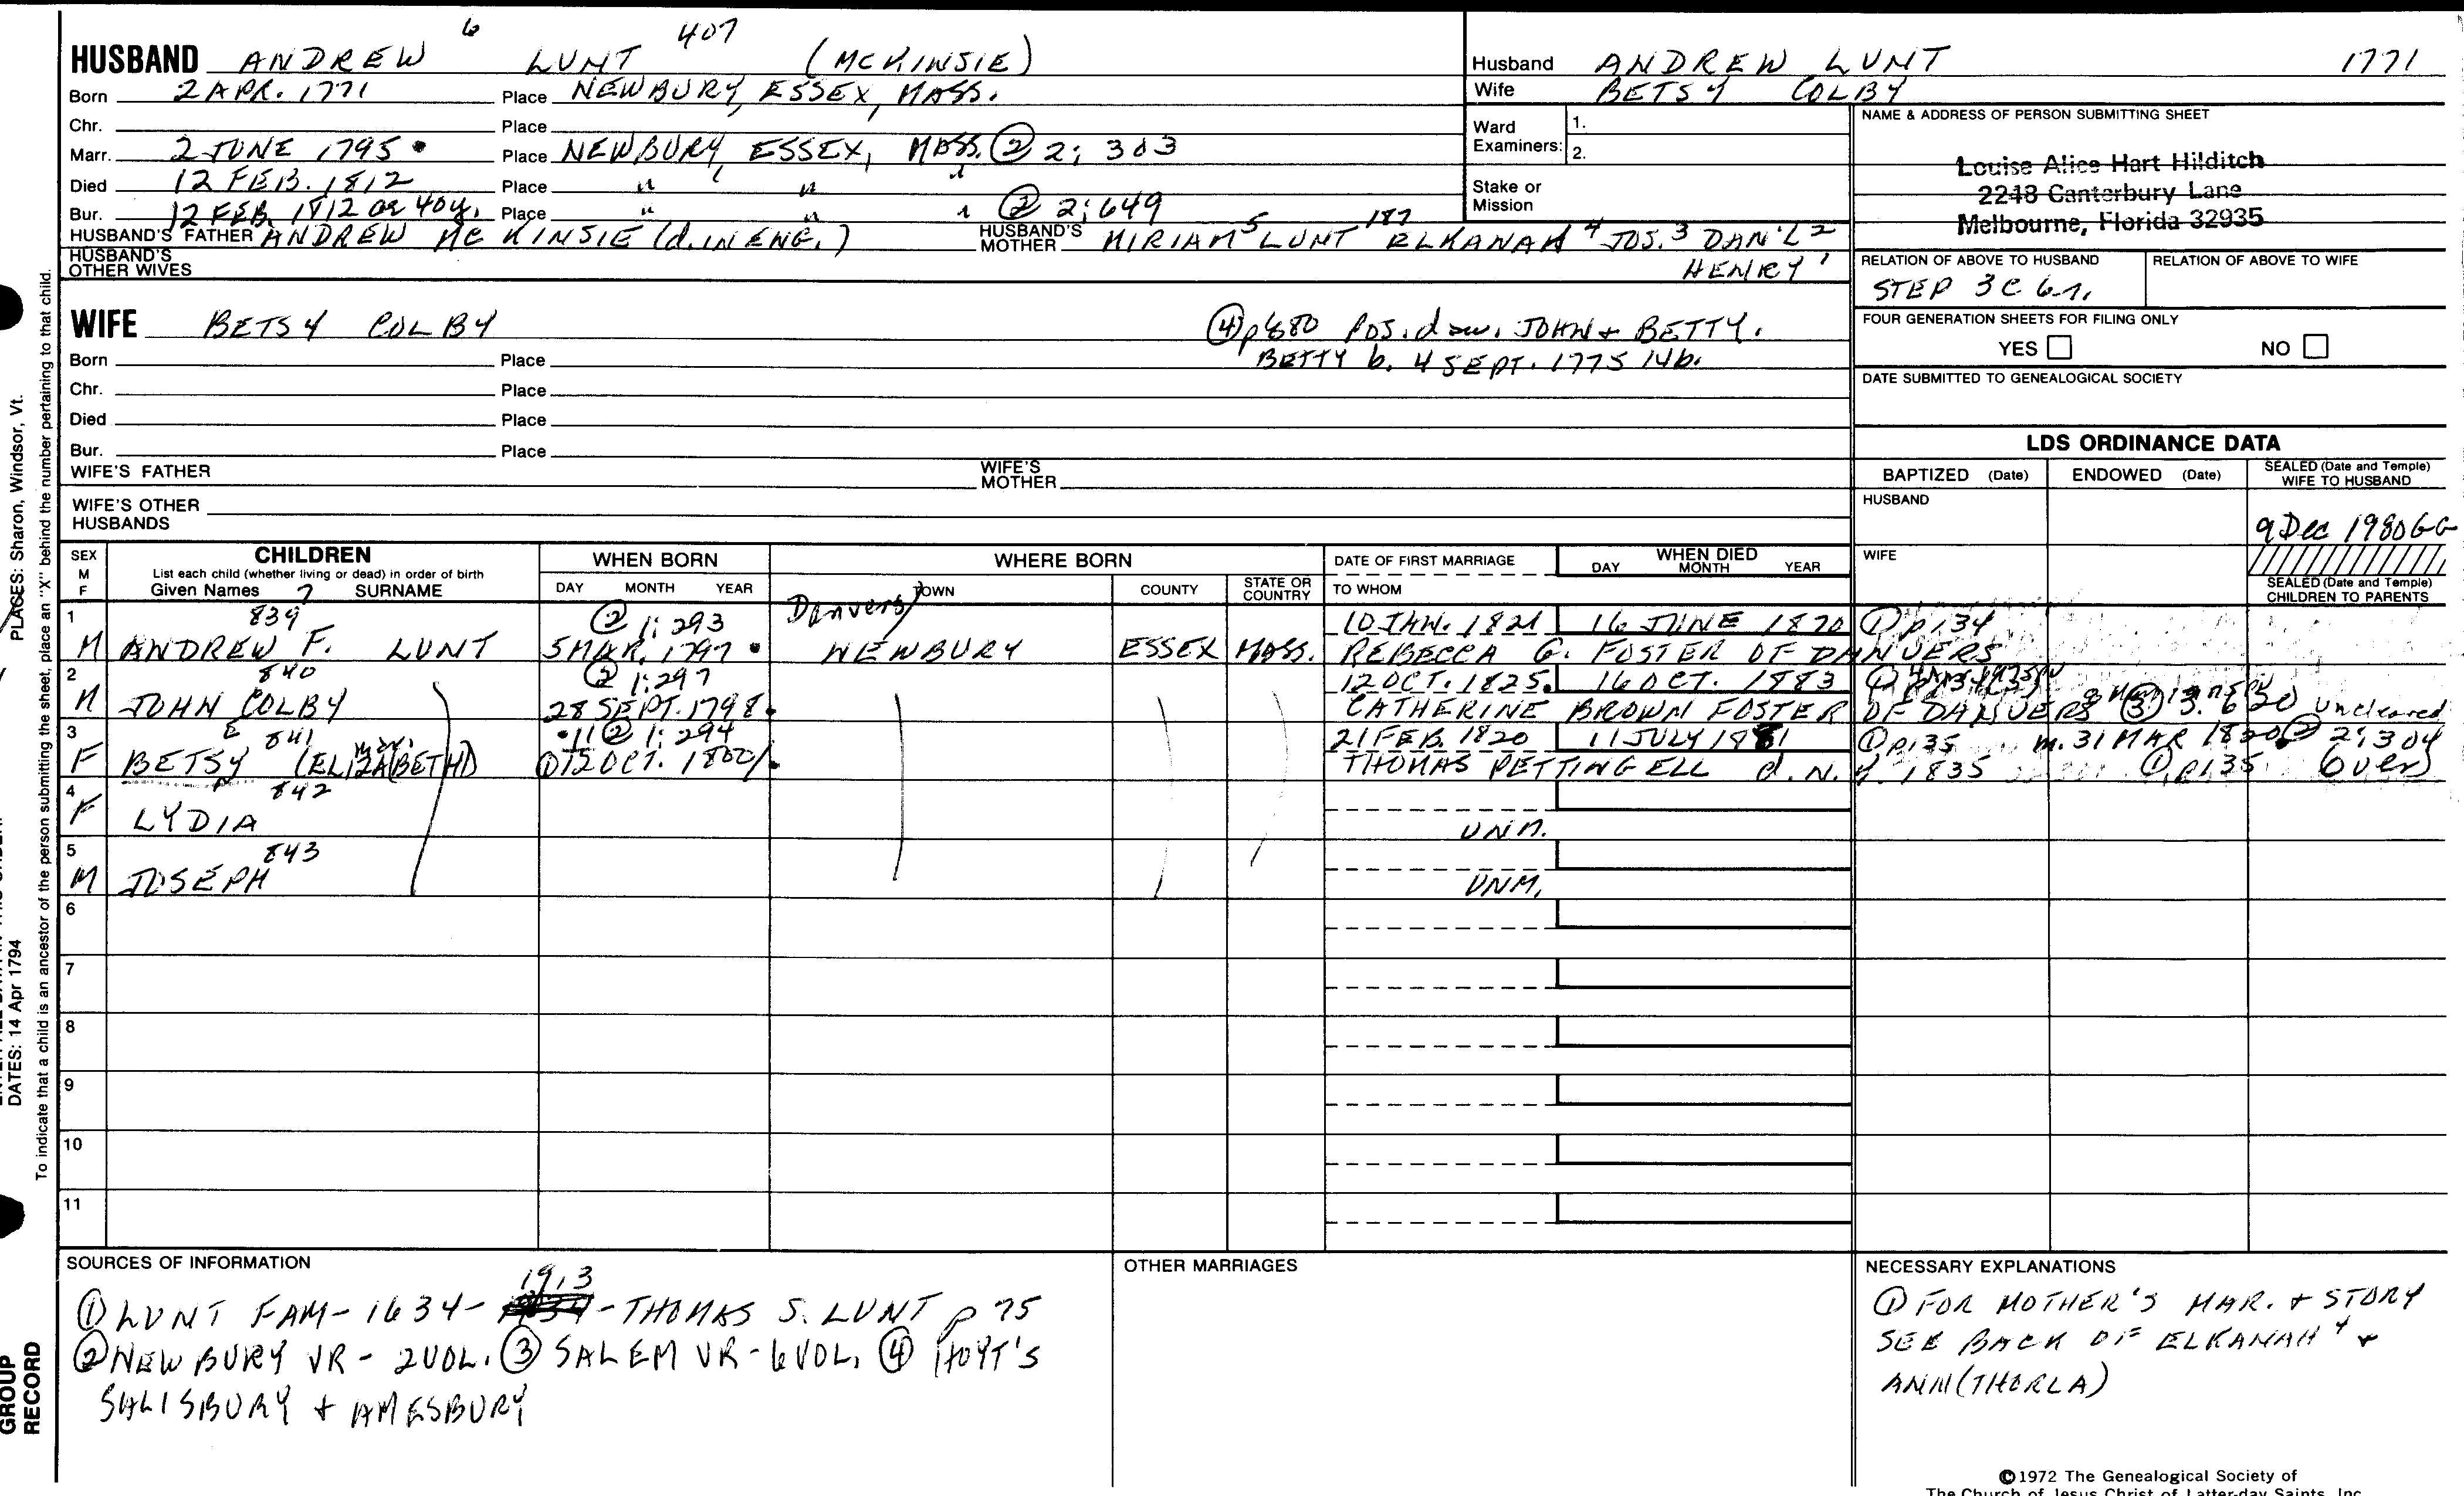 HUSBAND ANDREW 6 LUNT 407 (MCKINSIE)
Born 2 APR. 1771 Place NEWBURY, ESSEX, MASS.
Chr. Place
Marr. 2 JUNE 1795 • Place NEWBURY, ESSEX, MASS. ② 2; 303
Died 12 FEB. 1812 Place " " "
Bur. 12 FEB. 1812 ae 40y. Place " " " ② 2;649
HUSBAND'S FATHER ANDREW MC KINSIE (d. IN ENG.) HUSBAND'S MOTHER MIRIAM 5 LUNT 187 ELKANAH 4 JOS. 3 DAN'L 2
HENRY 1
HUSBAND'S OTHER WIVES
Husband ANDREW LUNT 1771
Wife BETSY COLBY
Ward Examiners: 1.
2.
Stake or Mission
NAME & ADDRESS OF PERSON SUBMITTING SHEET
Louise Alice Hart Hilditch
2248 Canterbury Lane
Melbourne, Florida 32935
RELATION OF ABOVE TO HUSBAND RELATION OF ABOVE TO WIFE
STEP 3C 6r.
FOUR GENERATION SHEETS FOR FILING ONLY
YES NO
DATE SUBMITTED TO GENEALOGICAL SOCIETY
WIFE BETSY COLBY ④ p 680 POS. dau. JOHN + BETTY.
Born Place BETTY b. 4 SEPT. 1775 14b.
Chr. Place
Died Place
Bur. Place
WIFE'S FATHER WIFE'S MOTHER
WIFE'S OTHER HUSBANDS
LDS ORDINANCE DATA
BAPTIZED (Date) ENDOWED (Date) SEALED (Date and Temple) WIFE TO HUSBAND
HUSBAND 9 Dec 1980 GG
WIFE
SEALED (Date and Temple) CHILDREN TO PARENTS
SEX M F
CHILDREN
List each child (whether living or dead) in order of birth
Given Names 7 SURNAME
WHEN BORN
DAY MONTH YEAR
WHERE BORN
TOWN COUNTY STATE OR COUNTRY
DATE OF FIRST MARRIAGE
TO WHOM
WHEN DIED
DAY MONTH YEAR
1 839 ② 1; 293 Danvers/ 10 JAN. 1821 16 JUNE 1870 ① p. 134
M ANDREW F. LUNT 5 MAR. 1797 • NEWBURY ESSEX MASS. REBECCA G. FOSTER OF DANVERS
2 840 ② 1:297 12 OCT. 1825. 16 OCT. 1883
M JOHN COLBY 28 SEPT. 1798. CATHERINE BROWN FOSTER OF DANVERS ③ 3. 620 Uncleared
3 841 •11 ② 1; 294 21 FEB. 1820 11 JULY 1981 ① p. 135 m. 31 MAR 1820. ② 2; 304
F BETSY (ELIZABETH) ① 12 OCT. 1800/. THOMAS PETTINGELL d. N. 1835 ① p. 135 (over)
4 842
F LYDIA UNM.
5 843
M JOSEPH UNM.
6
7
8
9
10
11
SOURCES OF INFORMATION
① LUNT FAM - 1634 - 1913 - THOMAS S. LUNT p 75
② NEWBURY VR - 2VOL. ③ SALEM VR - 6VOL, ④ HOYT'S
SALISBURY + AMESBURY
OTHER MARRIAGES
NECESSARY EXPLANATIONS
① FOR MOTHER'S MAR. + STORY
SEE BACK OF ELKANAH 4 +
ANN (THORLA)
©1972 The Genealogical Society of
The Church of Jesus Christ of Latter-day Saints, Inc.
PLACES: Sharon, Windsor, Vt.
DATES: 14 Apr 1794
To indicate that a child is an ancestor of the person submitting the sheet, place an "X" behind the number pertaining to that child.
GROUP
RECORD